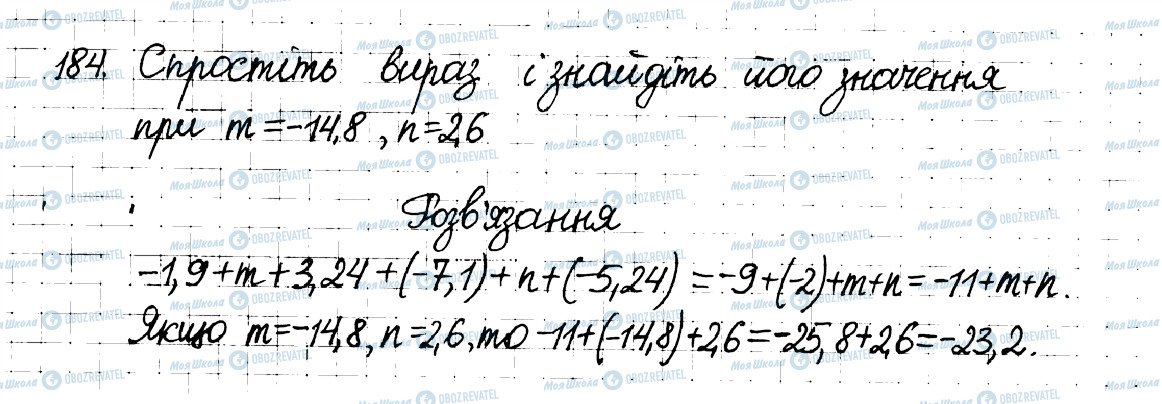 184. Спростіть вираз і знайдіть його значення
при m = -14,8 , n = 2,6
Розв'язання
-1,9 + m + 3,24 + (-7,1) + n + (-5,24) = -9 + (-2) + m + n = -11 + m + n.
Якщо m = -14,8, n = 2,6, то -11 + (-14,8) + 2,6 = -25,8 + 2,6 = -23,2.
МояШкола OBOZREVATEL